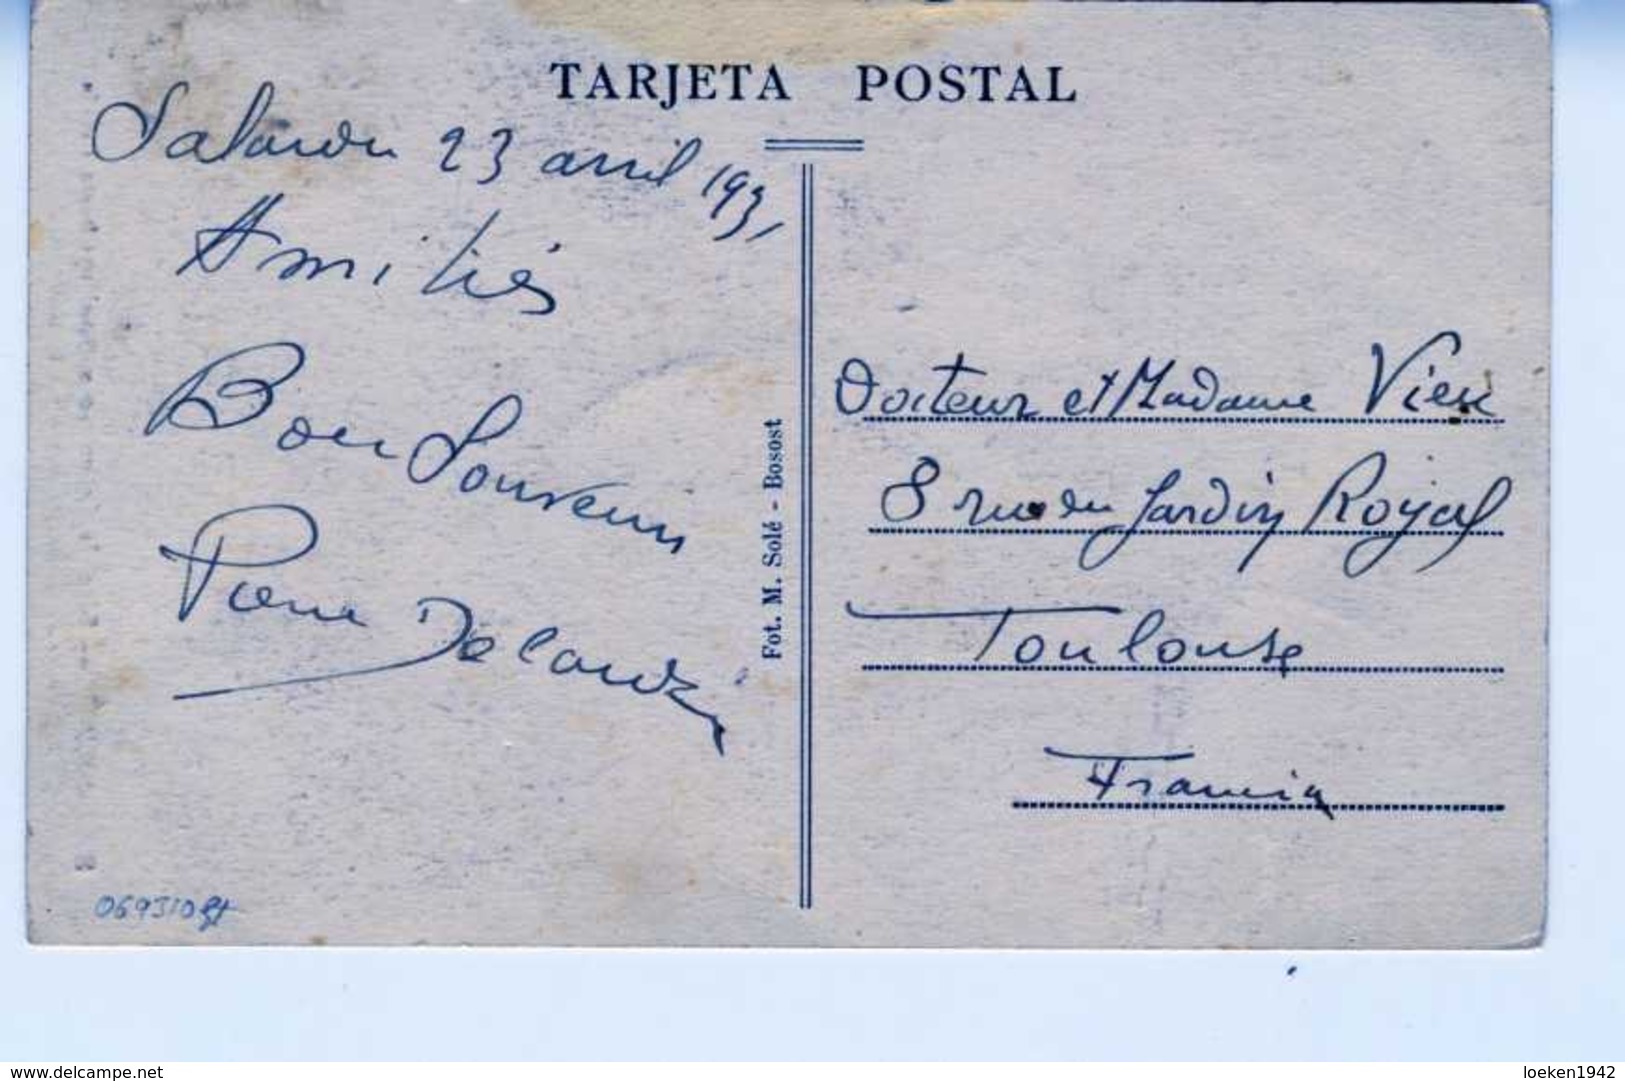 TARJETA POSTAL
Salardu 23 avril 1931
Amitiés
Bon Souvenir
Pierre
Fot. M. Solé - Bosost
Docteur et Madame
8 rue du Jardin Royal
Toulouse
Francia
www.delcampe.net
loeken1942